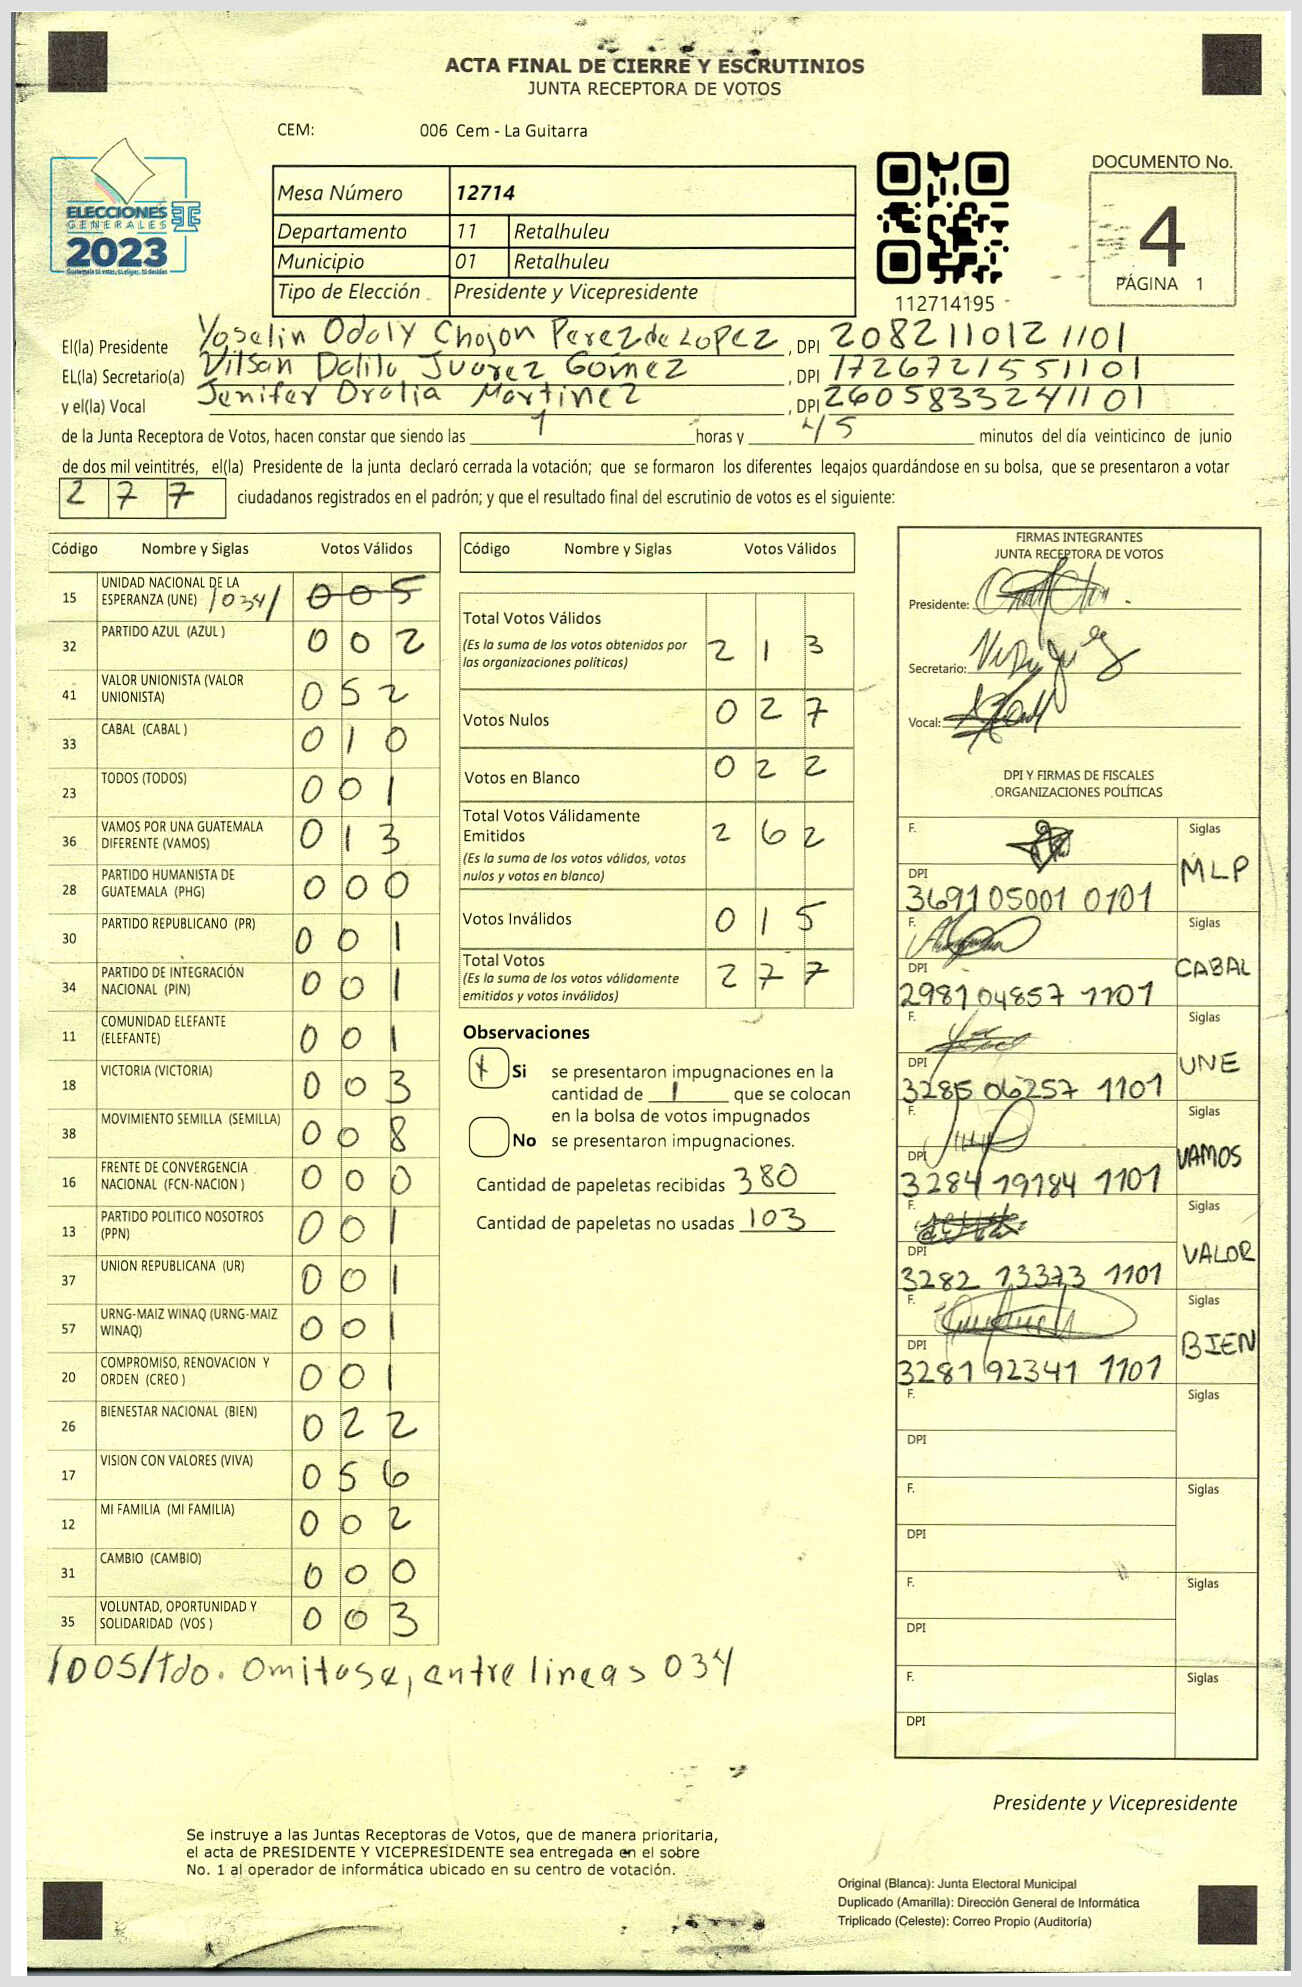 ACTA FINAL DE CIERRE Y ESCRUTINIOS
JUNTA RECEPTORA DE VOTOS
CEM: 006 Cem - La Guitarra
ELECCIONES
GENERALES
2023
Mesa Número 12714
Departamento 11 Retalhuleu
Municipio 01 Retalhuleu
Tipo de Elección Presidente y Vicepresidente
112714195
DOCUMENTO No.
4
PÁGINA 1
El(la) Presidente Yoselin Odaly Chojon Perez de Lopez, DPI 2082110121101
EL(la) Secretario(a) Vilsan Dalila Juarez Gómez, DPI 1726721551101
y el(la) Vocal Jenifer Oralia Martinez, DPI 2605833241101
de la Junta Receptora de Votos, hacen constar que siendo las 1 horas y 45 minutos del día veinticinco de junio
de dos mil veintitrés, el(la) Presidente de la junta declaró cerrada la votación; que se formaron los diferentes legajos guardándose en su bolsa, que se presentaron a votar
277 ciudadanos registrados en el padrón; y que el resultado final del escrutinio de votos es el siguiente:
Código Nombre y Siglas Votos Válidos
15 UNIDAD NACIONAL DE LA
ESPERANZA (UNE) /034/ 005
32 PARTIDO AZUL (AZUL ) 002
41 VALOR UNIONISTA (VALOR
UNIONISTA) 052
33 CABAL (CABAL ) 010
23 TODOS (TODOS) 001
36 VAMOS POR UNA GUATEMALA
DIFERENTE (VAMOS) 013
28 PARTIDO HUMANISTA DE
GUATEMALA (PHG) 000
30 PARTIDO REPUBLICANO (PR) 001
34 PARTIDO DE INTEGRACIÓN
NACIONAL (PIN) 001
11 COMUNIDAD ELEFANTE
(ELEFANTE) 001
18 VICTORIA (VICTORIA) 003
38 MOVIMIENTO SEMILLA (SEMILLA) 008
16 FRENTE DE CONVERGENCIA
NACIONAL (FCN-NACION ) 000
13 PARTIDO POLITICO NOSOTROS
(PPN) 001
37 UNION REPUBLICANA (UR) 001
57 URNG-MAIZ WINAQ (URNG-MAIZ
WINAQ) 001
20 COMPROMISO, RENOVACION Y
ORDEN (CREO ) 001
26 BIENESTAR NACIONAL (BIEN) 022
17 VISION CON VALORES (VIVA) 056
12 MI FAMILIA (MI FAMILIA) 002
31 CAMBIO (CAMBIO) 000
35 VOLUNTAD, OPORTUNIDAD Y
SOLIDARIDAD (VOS ) 003
/005/tdo. Omitase, entre lineas 034
Código Nombre y Siglas Votos Válidos
Total Votos Válidos
(Es la suma de los votos obtenidos por
las organizaciones políticas) 213
Votos Nulos 027
Votos en Blanco 022
Total Votos Válidamente
Emitidos 262
(Es la suma de los votos válidos, votos
nulos y votos en blanco)
Votos Inválidos 015
Total Votos
(Es la suma de los votos válidamente
emitidos y votos inválidos) 277
Observaciones
X Si se presentaron impugnaciones en la
cantidad de 1 que se colocan
en la bolsa de votos impugnados
No se presentaron impugnaciones.
Cantidad de papeletas recibidas 380
Cantidad de papeletas no usadas 103
FIRMAS INTEGRANTES
JUNTA RECEPTORA DE VOTOS
Presidente:
Secretario:
Vocal:
DPI Y FIRMAS DE FISCALES
ORGANIZACIONES POLÍTICAS
F. Siglas
MLP
DPI
369105001 0101
F. Siglas
CABAL
DPI
298104857 1101
F. Siglas
UNE
DPI
3285 06257 1101
F. Siglas
VAMOS
DPI
3284 19184 1101
F. Siglas
VALOR
DPI
3282 13373 1101
F. Siglas
BIEN
DPI
3281 92341 1101
F. Siglas
DPI
F. Siglas
DPI
F. Siglas
DPI
F. Siglas
DPI
Presidente y Vicepresidente
Se instruye a las Juntas Receptoras de Votos, que de manera prioritaria,
el acta de PRESIDENTE Y VICEPRESIDENTE sea entregada en el sobre
No. 1 al operador de informática ubicado en su centro de votación.
Original (Blanca): Junta Electoral Municipal
Duplicado (Amarilla): Dirección General de Informática
Triplicado (Celeste): Correo Propio (Auditoría)